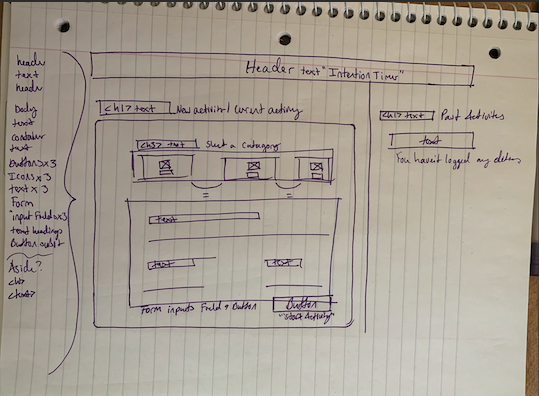 header
text
header
Body
text
container
text
Buttons x 3
Icons x 3
text x 3
Form
input Fields x 3
text headings
Button
Aside?
<h1>
<text>
Header text "Intention Timer"
<h1> text New activity / Current activity
<h3> text Select a Category
=
=
text
text
text
Form inputs Field + Button
Button
"Start Activity"
<h1> text Past Activities
text
You haven't logged any